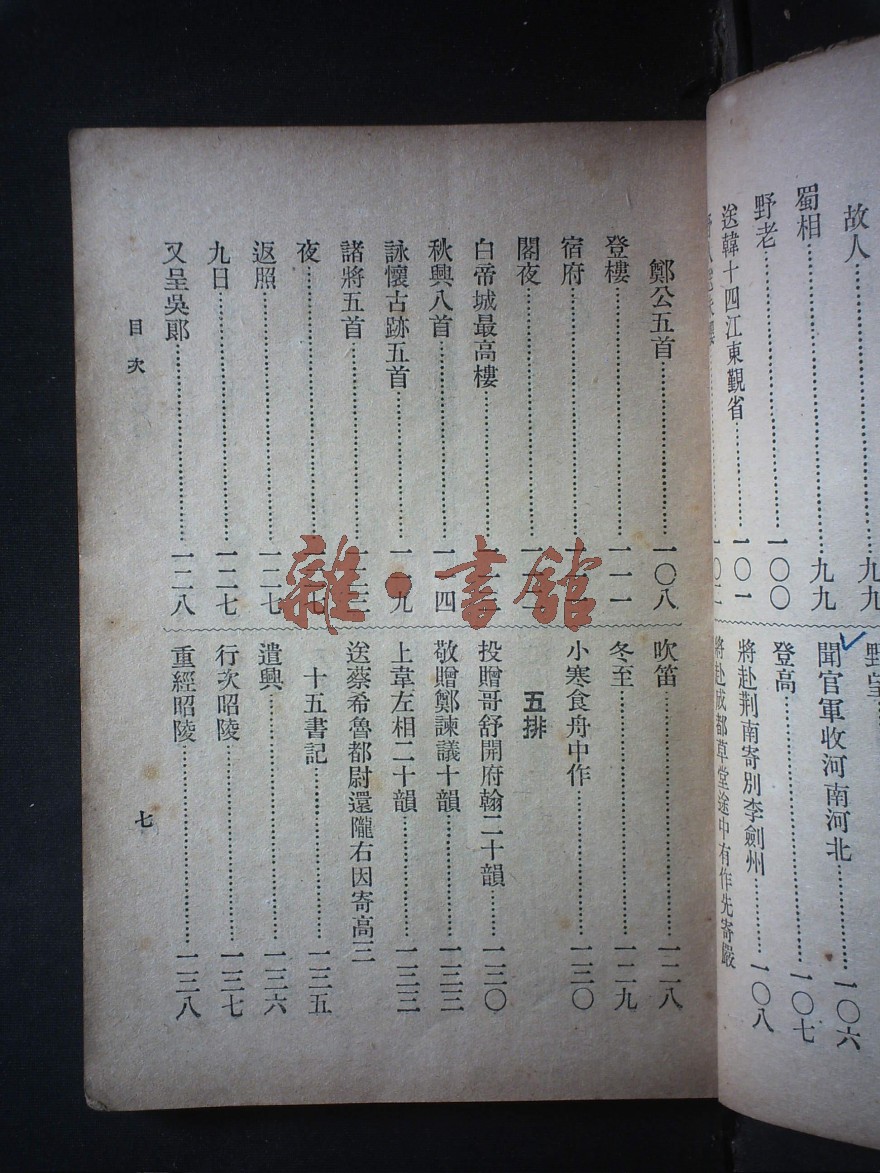 故人……九九
蜀相……九九
野老……一〇〇
送韓十四江東覲省……一〇一
野望
聞官軍收河南河北……一〇六
登高……一〇七
將赴荆南寄別李劍州……一〇八
將赴成都草堂途中有作先寄嚴
鄭公五首……一〇八
登樓……一一一
宿府……
閣夜……
白帝城最高樓……
秋興八首……一一四
詠懷古跡五首……一一九
諸將五首……
夜……
返照……一二七
九日……一二七
又呈吳郎……一二八
吹笛……一二八
冬至……一二九
小寒食舟中作……一三〇
五排
投贈哥舒開府翰二十韻……一三〇
敬贈鄭諫議十韻……一三三
上韋左相二十韻……一三三
送蔡希魯都尉還隴右因寄高三
十五書記……一三五
遣興……一三六
行次昭陵……一三七
重經昭陵……一三八
目次
七
雜·書館